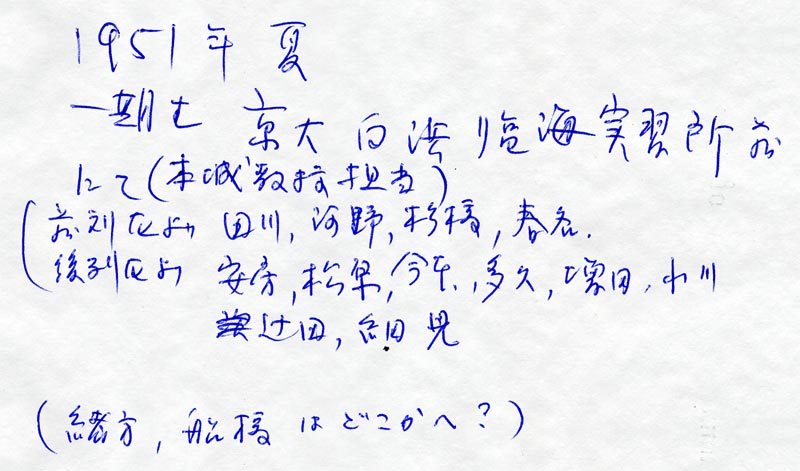 1951年 夏
一期生 京大白浜臨海実習所前
にて(本城教授担当)
前列左より 田川, 河野, 杉様, 春名.
後列左より 安房, 松早, 今在, 多久, 増田, 小川
辻田, 細見
(緒方, 船様 はどこかへ?)